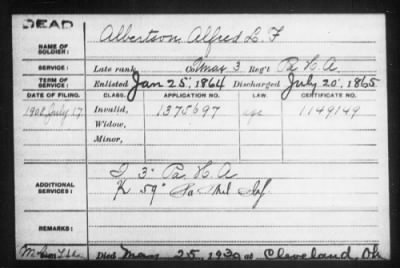 DEAD
NAME OF SOLDIER: Albertson, Alfred L. F
SERVICE: Late rank, Co. Unas 3 Reg't Pa H A
TERM OF SERVICE: Enlisted Jan 25, 1864 Discharged July 20, 1865
DATE OF FILING. CLASS. APPLICATION NO. LAW. CERTIFICATE NO.
1908 July 17 Invalid, 1375697 age 1149149
Widow,
Minor,
ADDITIONAL SERVICES: I 3" Pa. H A
K 59" Pa Mil Inf
REMARKS:
Died May 25, 1930 at Cleveland, Oh